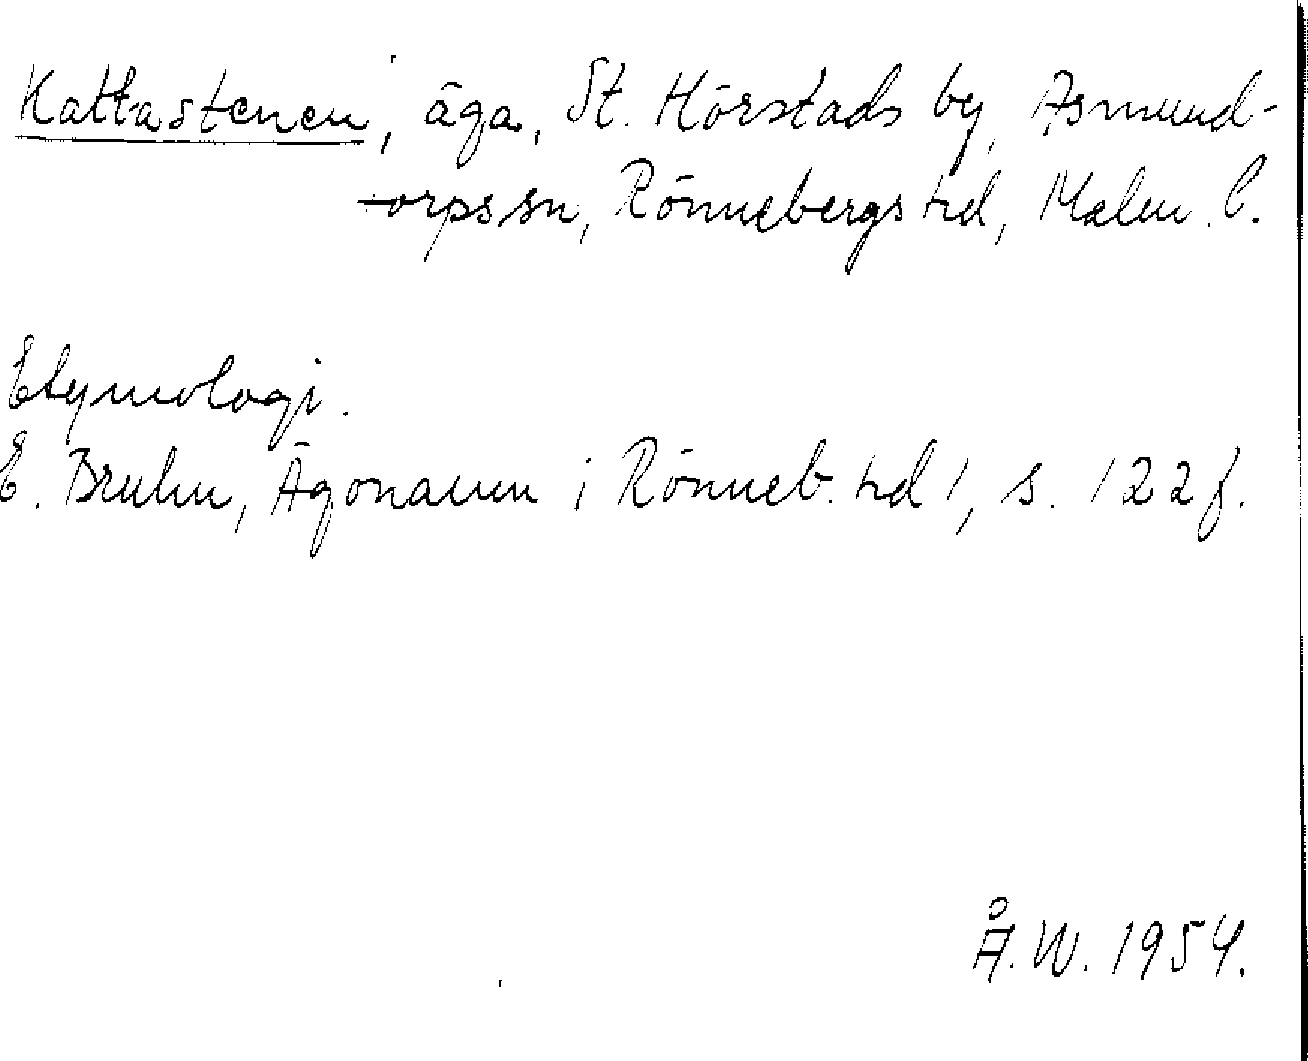 Kattastenen, äga, St. Hörstads by, Asmund-
torpssn, Rönnebergs hd, Malm. l.
Etymologi.
E. Bruhn, Ägonamn i Rönneb. hd 1, s. 122 f.
Å. W. 1954.